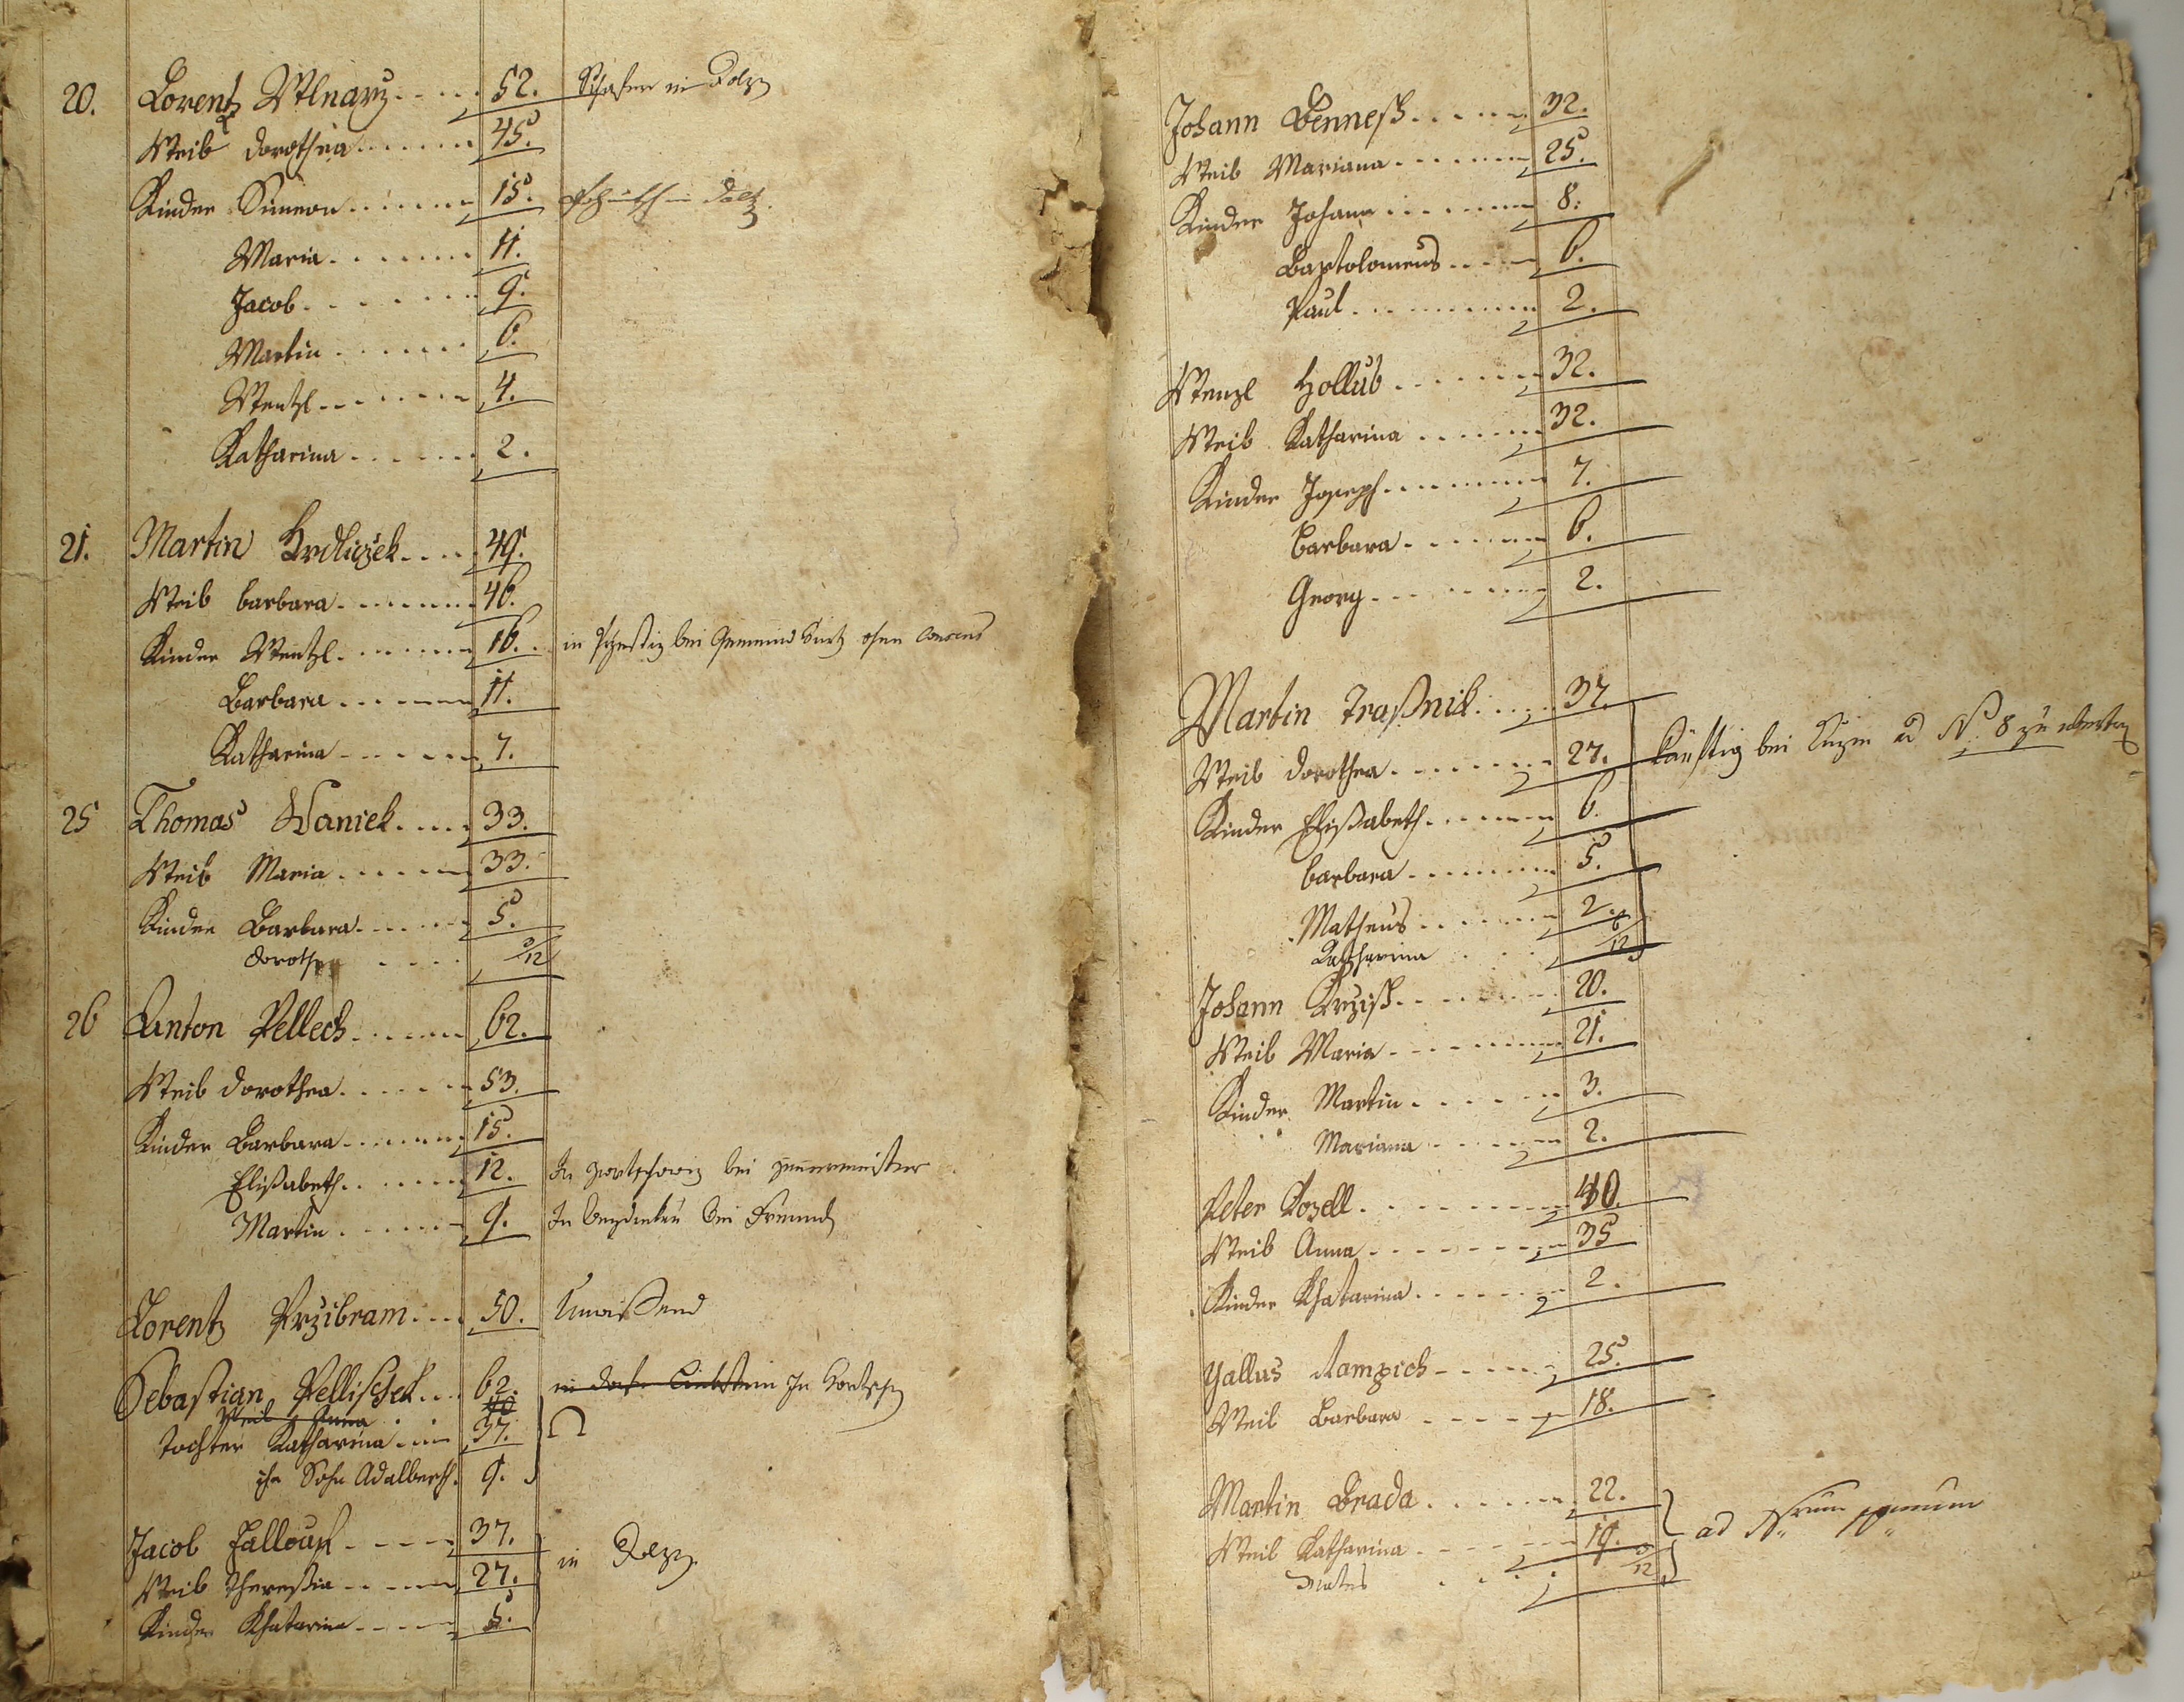 20. Lorentz Mlnarz 52. Schafer in Dolz
Weib Dorothea 45.
Kinder Simeon 15.
Maria 11.
Jacob 9.
Martin 6.
Wentzl 4.
Katharina 2.
21. Martin Hrdliczek 49.
Weib Barbara 46.
Kinder Wentzl 16. in bei Gemeind ohne Consens
Barbara 11.
Katharina 7.
25 Thomas Waniek 33.
Weib Maria 33.
Kinder Barbara 5.
Dorothea /12
26 Anton Pellech 62.
Weib Dorothea 53.
Kinder Barbara 15.
Elißabeth 12. In bei
Martin 9. In bei Freund
Lorentz Przibram 50. Unwißend
Sebastian Pellischek 62. in In
Weib Anna 40
Tochter Katharina 37.
ihr Sohn Adalberth 9.
Jacob Zalloup 37.
Weib Theresia 27. in Dolz
Kinder Khatarina 5.
Johann Bennesch 32.
Weib Mariana 25.
Kinder Johann 8.
Bartolomeus 6.
Paul 2.
Wenzl Hollub 32.
Weib Katharina 32.
Kinder Joseph 7.
Barbara 6.
Georg 2.
Martin Traßnik 37.
Weib Dorothea 27. künftig bei ad N. 8 zu
Kinder Elißabeth 6.
Barbara 5.
Matheus 2.
Katharina 6/12
Johann Krzisch 20.
Weib Maria 21.
Kinder Martin 3.
Mariana 2.
Peter Kozell 40
Weib Anna 35
Kinder Khatarina 2.
Gallus Rampich 25.
Weib Barbara 18.
Martin Brada 22.
Weib Katharina 19. ad Nrum
Mates /12